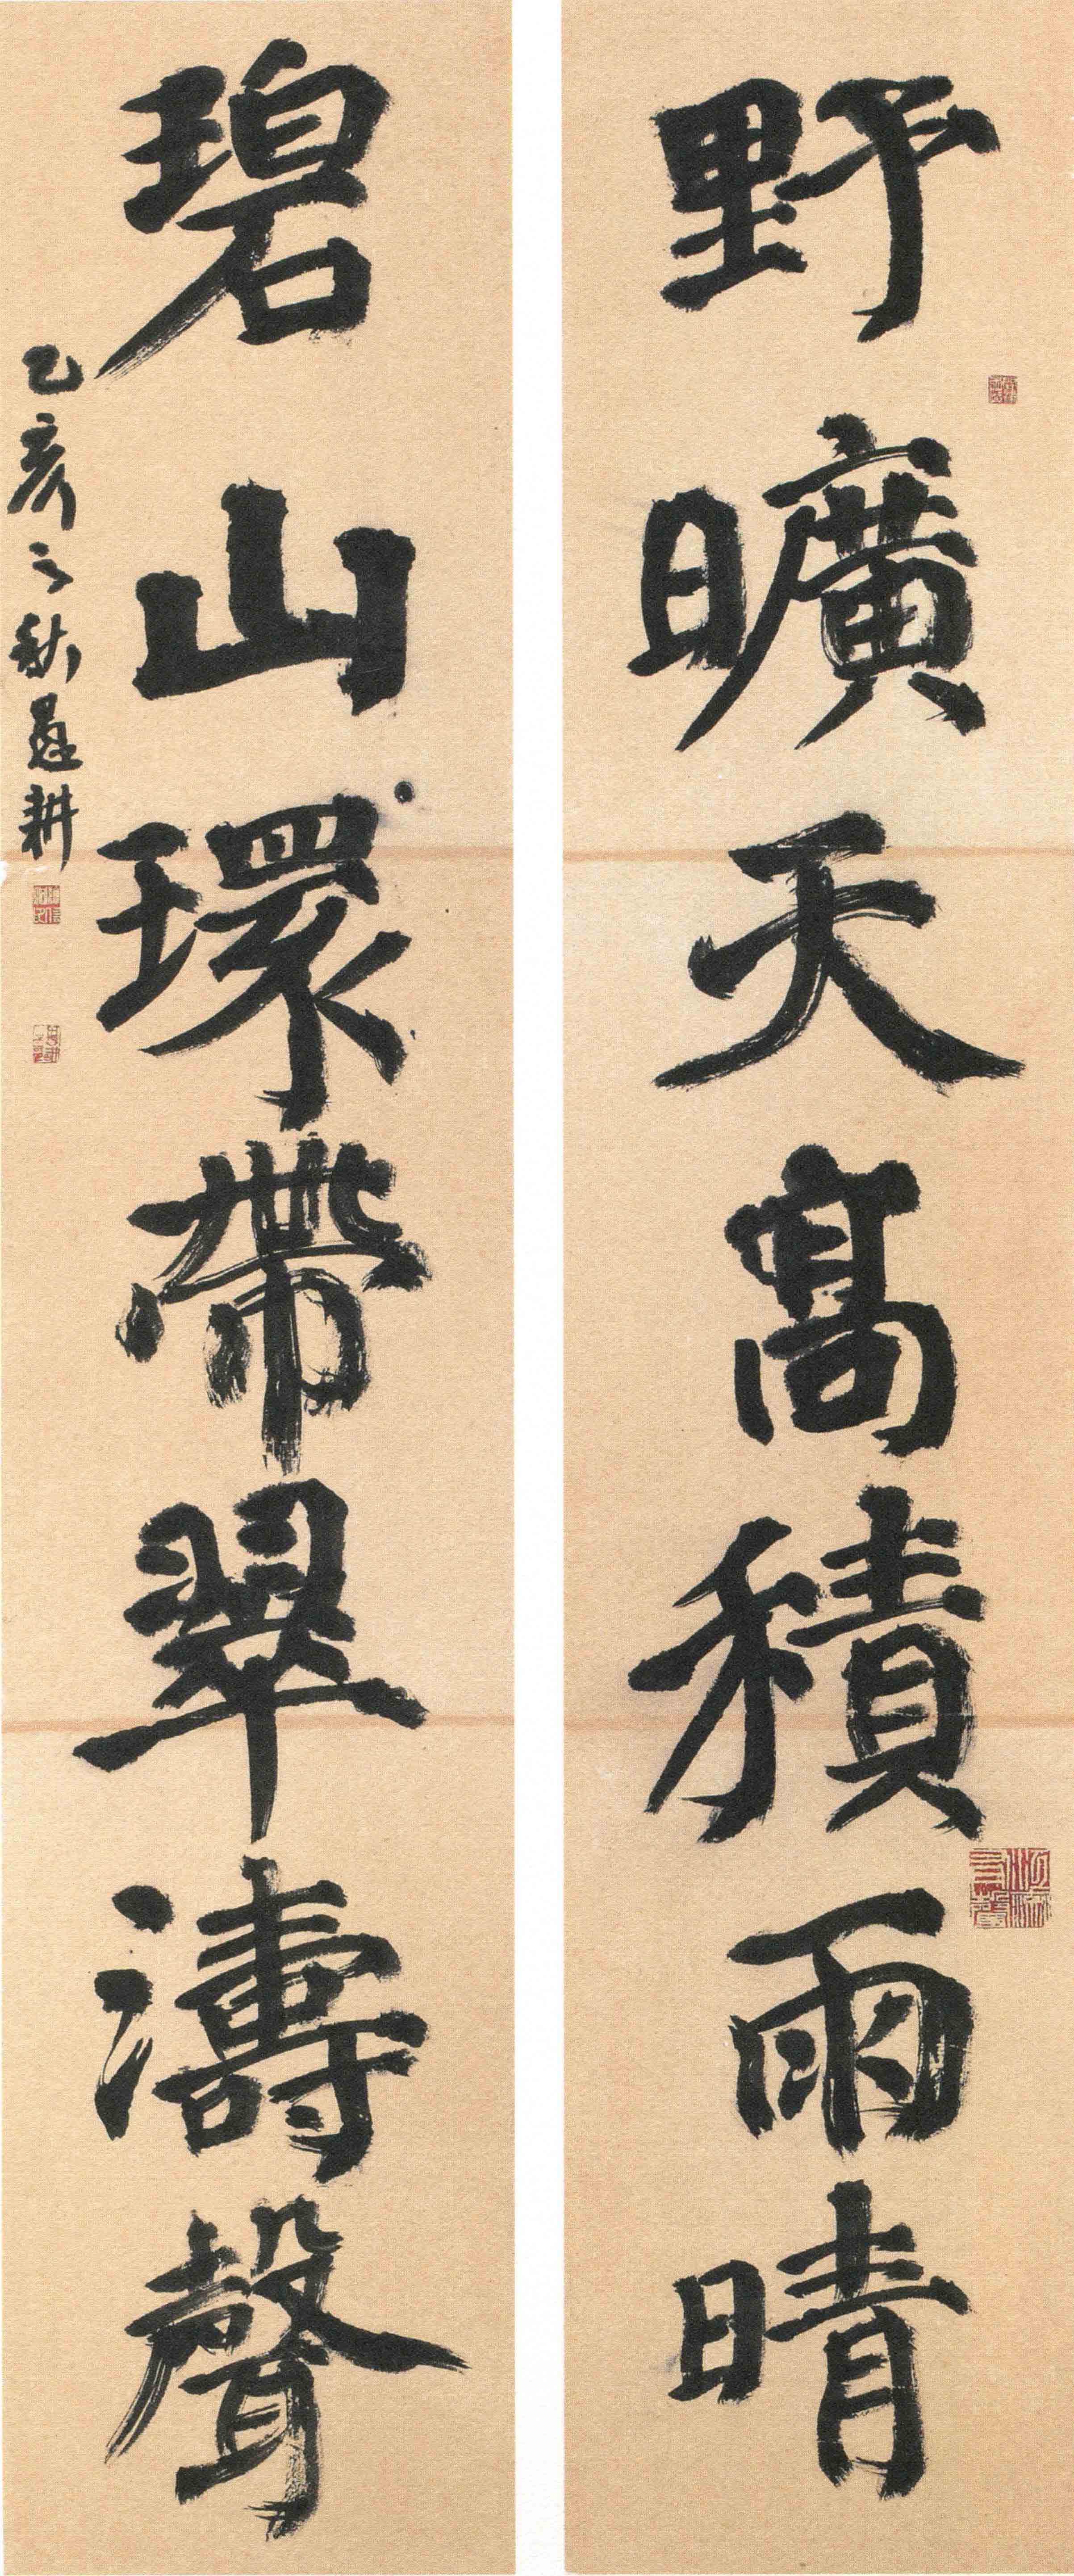 野曠天高積雨晴
碧山環帶翠濤聲
乙亥之秋
耕